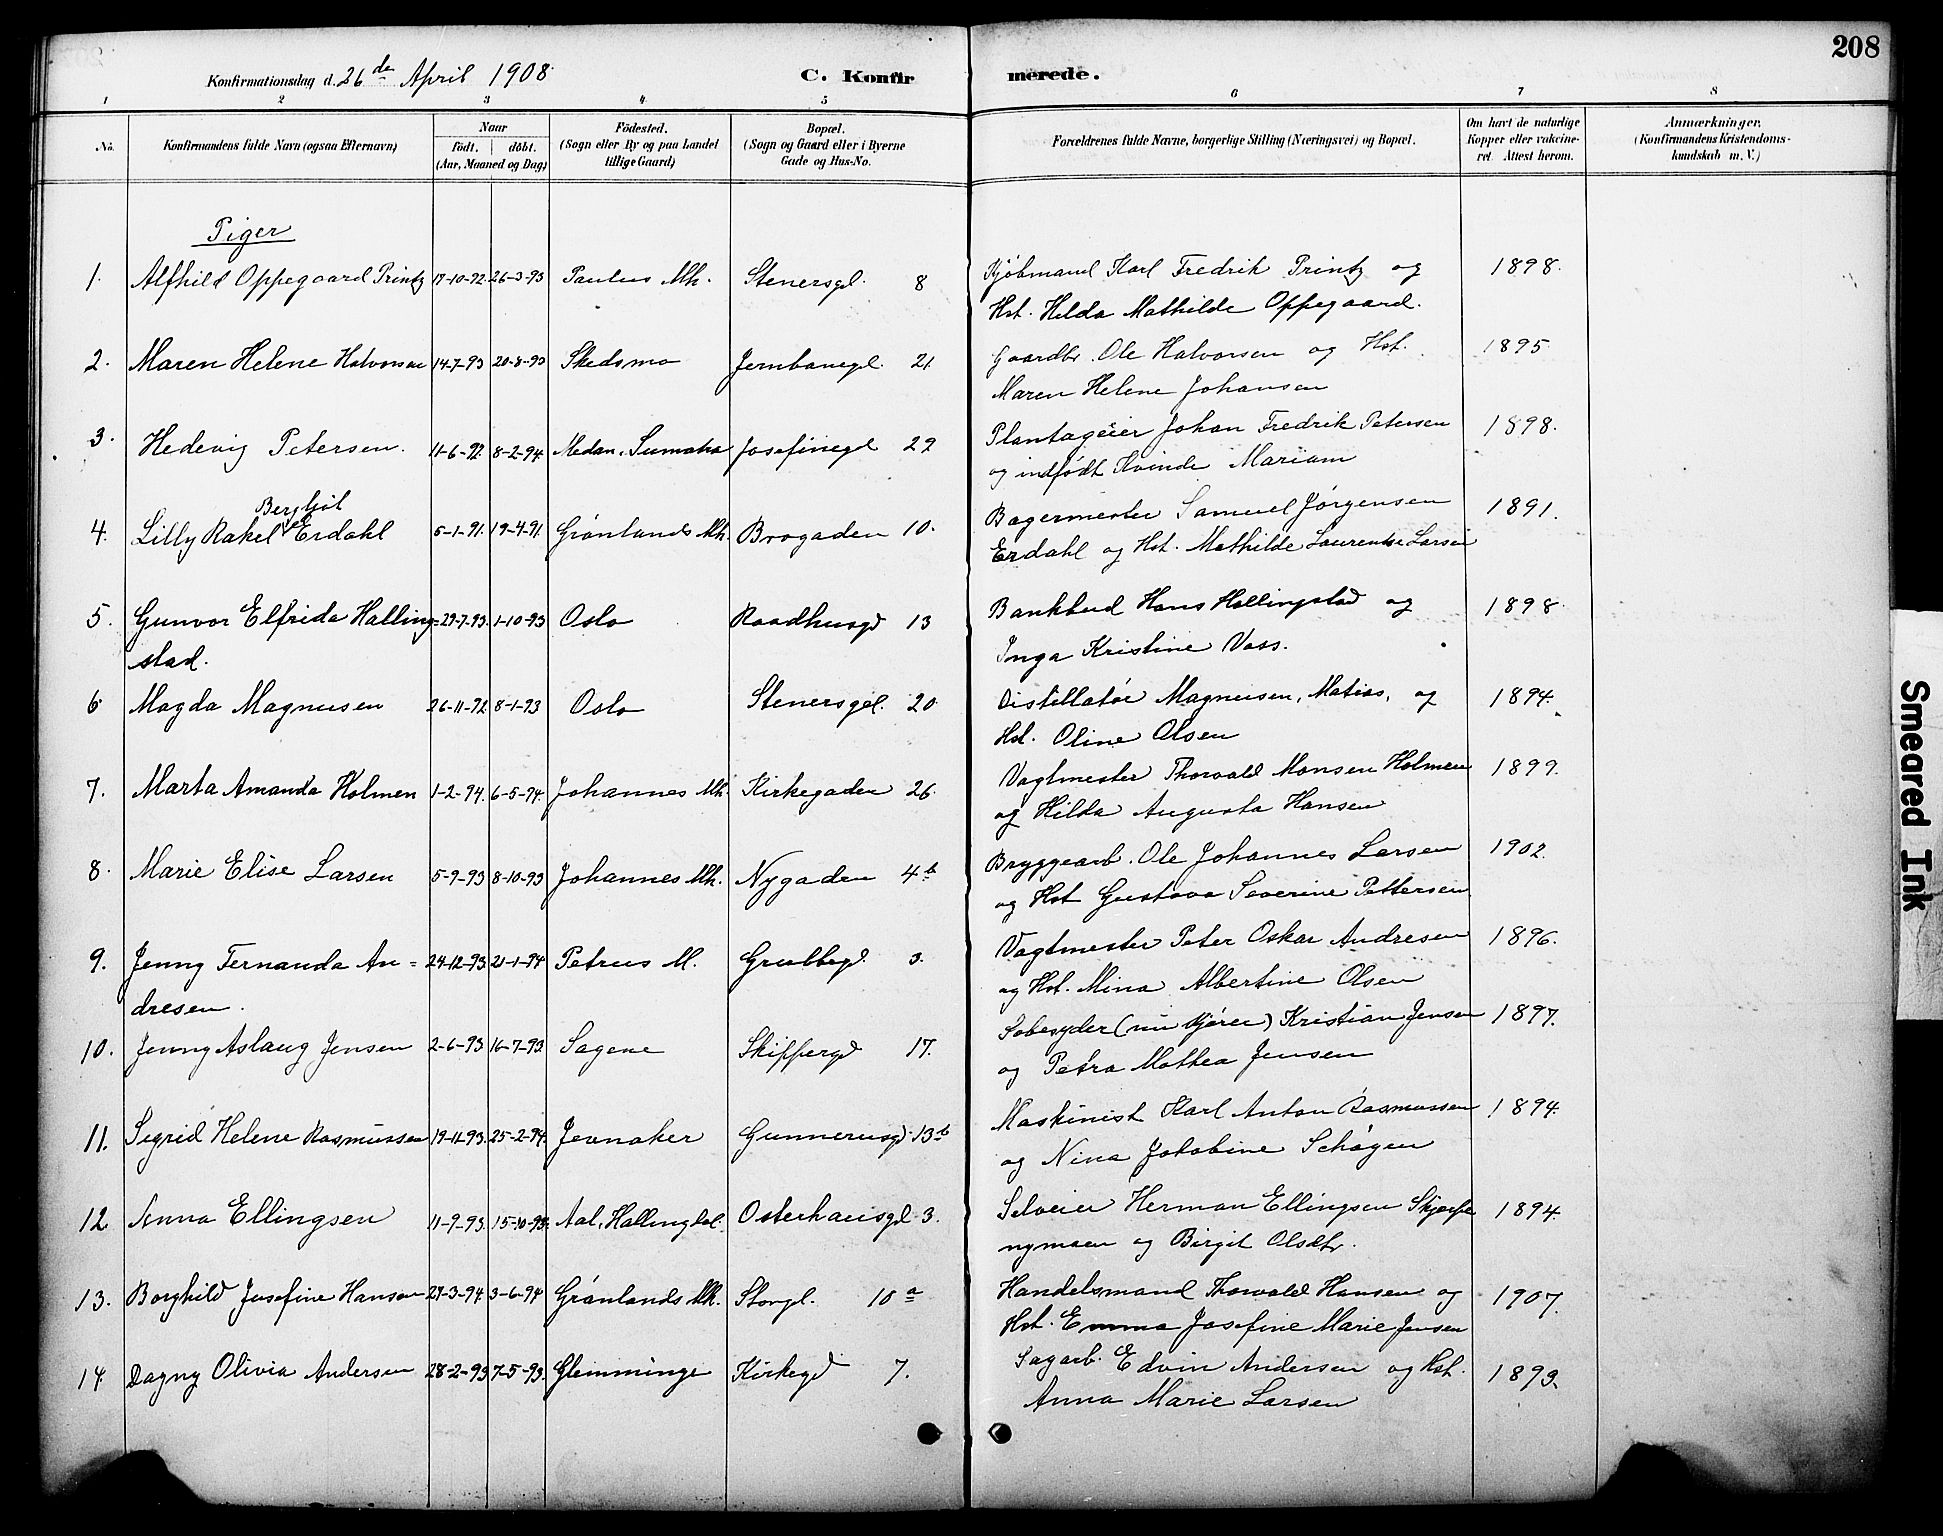 208
Konfirmationsdag d. 26de April 1908.
C. Konfirmerede.
1 2 3 4 5 6 7 8
No.
Konfirmandens fulde Navn (ogsaa Efternavn)
Naar
födt. | döbt.
(Aar, Maaned og Dag)
Födested.
(Sogn eller By og paa Landet
tillige Gaard)
Bopæl.
(Sogn og Gaard eller i Byerne
Gade og Hus-No.
Forældrenes fulde Navne, borgerlige Stilling (Næringsvei) og Bopæl.
Om havt de naturlige
Kopper eller vakcine-
ret. Attest herom.
Anmærkninger.
(Konfirmandens Kristendoms-
kundskab m. V.)
Piger
1. Alfhild Oppegaard Printz 17-10-92. 26-3-93 Paulus Mh. Stenersgd. 8 Kjøbmand Karl Fredrik Printz og 1898.
Hst. Hilda Mathilde Oppegaard.
2. Maren Helene Halvorsen 14-7-93 20-8-93 Skedsmo Jernbanegd. 21. Gaardbr. Ole Halvorsen og Hst. 1895
Maren Helene Johansen
3. Hedevig Petersen. 11-6-92. 8-2-94. Medan, Sumatra Josefinegd 29 Plantageeier Johan Fredrik Petersen 1898.
og indfødt Kvinde Mariam
Bergljöt
4. Lilly Rakel Erdahl 5-1-91. 19-4-91. Grønlands Mh. Brogaden 10. Bagermester Samuel Jørgensen 1891.
Erdahl og Hst. Mathilde Laurentse Larsen
5. Gunvor Elfrida Halling= 29-7-93. 1-10-93 Oslo Raadhusgd 13 Bankbud Hans Hallingstad og 1898.
stad. Inga Kristine Vass.
6. Magda Magnusen 26-11-92 8-1-93 Oslo Stenersgd. 20. Distillatör Magnusen, Matias, og 1894.
Hst. Oline Olsen
7. Marta Amanda Holmen 1-2-94. 6-5-94. Johannes Mh. Kirkegaden 26. Vagtmester Thorvald Monsen Holmen 1899.
og Hilda Augusta Hansen
8. Marie Elise Larsen 5-9-93 8-10-93 Johannes Mh. Nygaden 4b Bryggearb. Ole Johannes Larsen 1902.
og Hst Gustava Severine Pettersen
9. Jenny Fernanda An= 24-12-93. 21-1-94 Petrus M. Grubbegd. 3. Vagtmester Peter Oskar Andresen 1896.
dresen. og Hst. Mina Albertine Olsen
10. Jenny Aslaug Jensen 2-6-93 16-7-93. Sagene Skippergd 17. Sæbesyder (nu Kjører) Kristian Jensen 1897.
og Petra Mathea Jensen
11. Sigrid Helene Rasmussen 19-11-93. 25-2-94. Jevnaker Gunnerusgd. 13b Maskinist Karl Anton Rasmussen 1894.
og Nina Jakobine Schøyen
12. Anna Ellingsen 11-9-93. 15-10-93. Aal, Hallingdal. Osterhausgd. 3. Selveier Herman Ellingsen 1894.
og Birgit Olsdtr.
13. Borghild Josefine Hansen 27-3-94. 3-6-94 Grønlands Mh. Storgd. 10a Handelsmand Thorvald Hansen og 1907.
Hst. Emma Josefine Marie Jensen
14. Dagny Olivia Andersen 28-2-93 7-5-93. Glemminge Kirkegd 7. Sagarb. Edvin Andersen og Hst. 1893.
Anna Marie Larsen
Smeared Ink